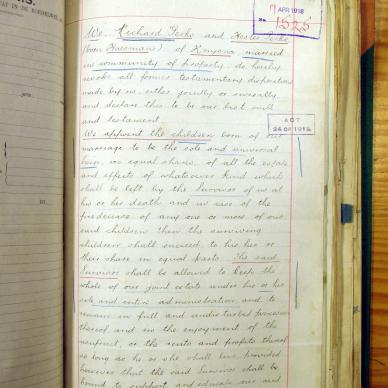 7 APR 1918
No. 1525
We Richard Jecks and Hester Jecks
(born Huismans), of Knysna, married
in community of property, do hereby
revoke all former testamentary disposition
made by us, either jointly or severally,
and declare this to be our last will
and testament.
We appoint the children born of our
marriage to be the sole and universal
heirs, in equal shares, of all the estate
and effects of whatsoever kind which
shall be left by the Survivor of us at
his or her death and in case of the
predecease of any one or more of our
said children then the surviving
children shall succeed to his, her or
their share in equal parts. The said
Survivor shall be allowed to keep the
whole of our joint estate under his or her
sole and entire administration and to
remain in full and undisturbed possession
thereof and in the enjoyment of the
usufruct, or the rents and profits thereof
so long as he or she shall live, provided
however that the said Survivor shall be
bound to support and educate our said
ACT
24 OF 1913.